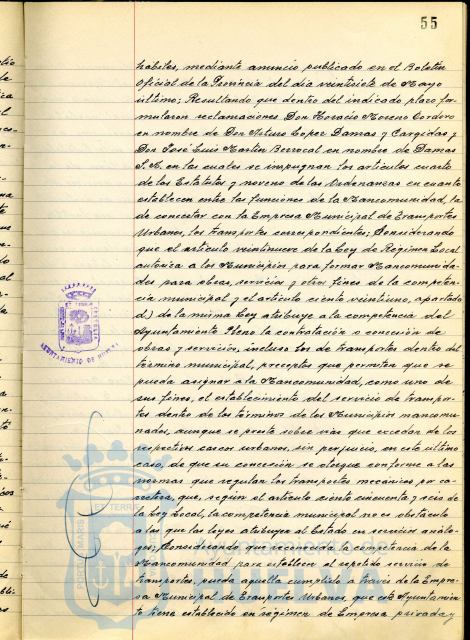 55
hábiles, mediante anuncio publicado en el Boletín
Oficial de la Provincia del día veintisiete de Mayo
último; Resultando que dentro del indicado plazo for-
mularon reclamaciones Don Horacio Moreno Cordero
en nombre de Don Arturo López Damas y
Don José Luis Martín Berrocal en nombre de Damas
S.A. en las cuales se impugnan los artículos cuarto
de los Estatutos y noveno de las Ordenanzas en cuanto
establecen entre las funciones de la Mancomunidad, la
de concertar con la Empresa Municipal de Transportes
Urbanos, los transportes correspondientes; Considerando
que el artículo veintinueve de la Ley de Régimen Local
autoriza a los Municipios para formar Mancomunida-
des para obras, servicios y otros fines de la competen-
cia municipal y el artículo ciento veintiuno, apartado
d) de la misma Ley atribuye a la competencia del
Ayuntamiento Pleno la contratación o concesión de
obras y servicios, incluso los de transportes dentro del
término municipal, preceptos que permiten que se
pueda asignar a la Mancomunidad, como uno de
sus fines, el establecimiento del servicio de transpor-
tes dentro de los términos de los Municipios mancomu-
nados, aunque se preste sobre vías que excedan de los
respectivos cascos urbanos, sin perjuicio, en este último
caso, de que su concesión se otorgue conforme a las
normas que regulan los transportes mecánicos por ca-
rretera, que, según el artículo ciento cincuenta y seis de
la Ley Local, la competencia municipal no es obstáculo
a las que las leyes atribuyen al Estado en servicios análo-
gos; Considerando, que reconocida la competencia de la
Mancomunidad para establecer el repetido servicio de
transportes, pueda aquella cumplirlo a través de la Empre-
sa Municipal de Transportes Urbanos, que este Ayuntamien-
to tiene establecido en régimen de Empresa privada y
AYUNTAMIENTO DE HUELVA
PORTUS MARIS
TERRE
Ayuntamiento de